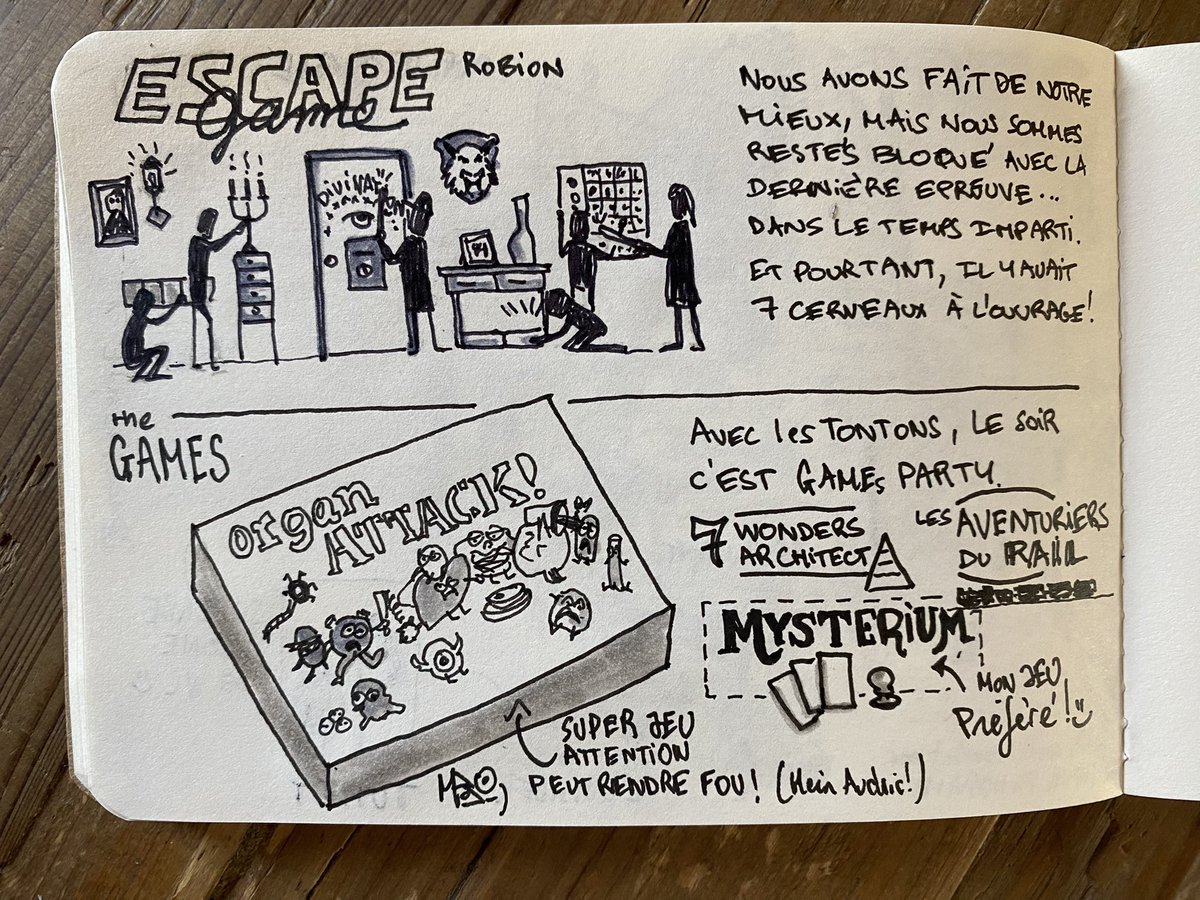 ESCAPE
Game
ROBION
DIVINATION
NOUS AVONS FAIT DE NOTRE
MIEUX, MAIS NOUS SOMMES
RESTÉS BLOQUÉ AVEC LA
DERNIÈRE EPREUVE...
DANS LE TEMPS IMPARTI.
ET POURTANT, IL Y AVAIT
7 CERVEAUX À L'OUVRAGE!
the
GAMES
organ
ATTACK!
AVEC les TONTONS, LE SOIR
C'EST GAMEs PARTY.
7 WONDERS
ARCHITECT
LES AVENTURIERS
DU RAIL
MYSTERIUM
MON JEU
Préféré!
SUPER JEU
ATTENTION
PEUT RENDRE FOU! (Hein Audric!)